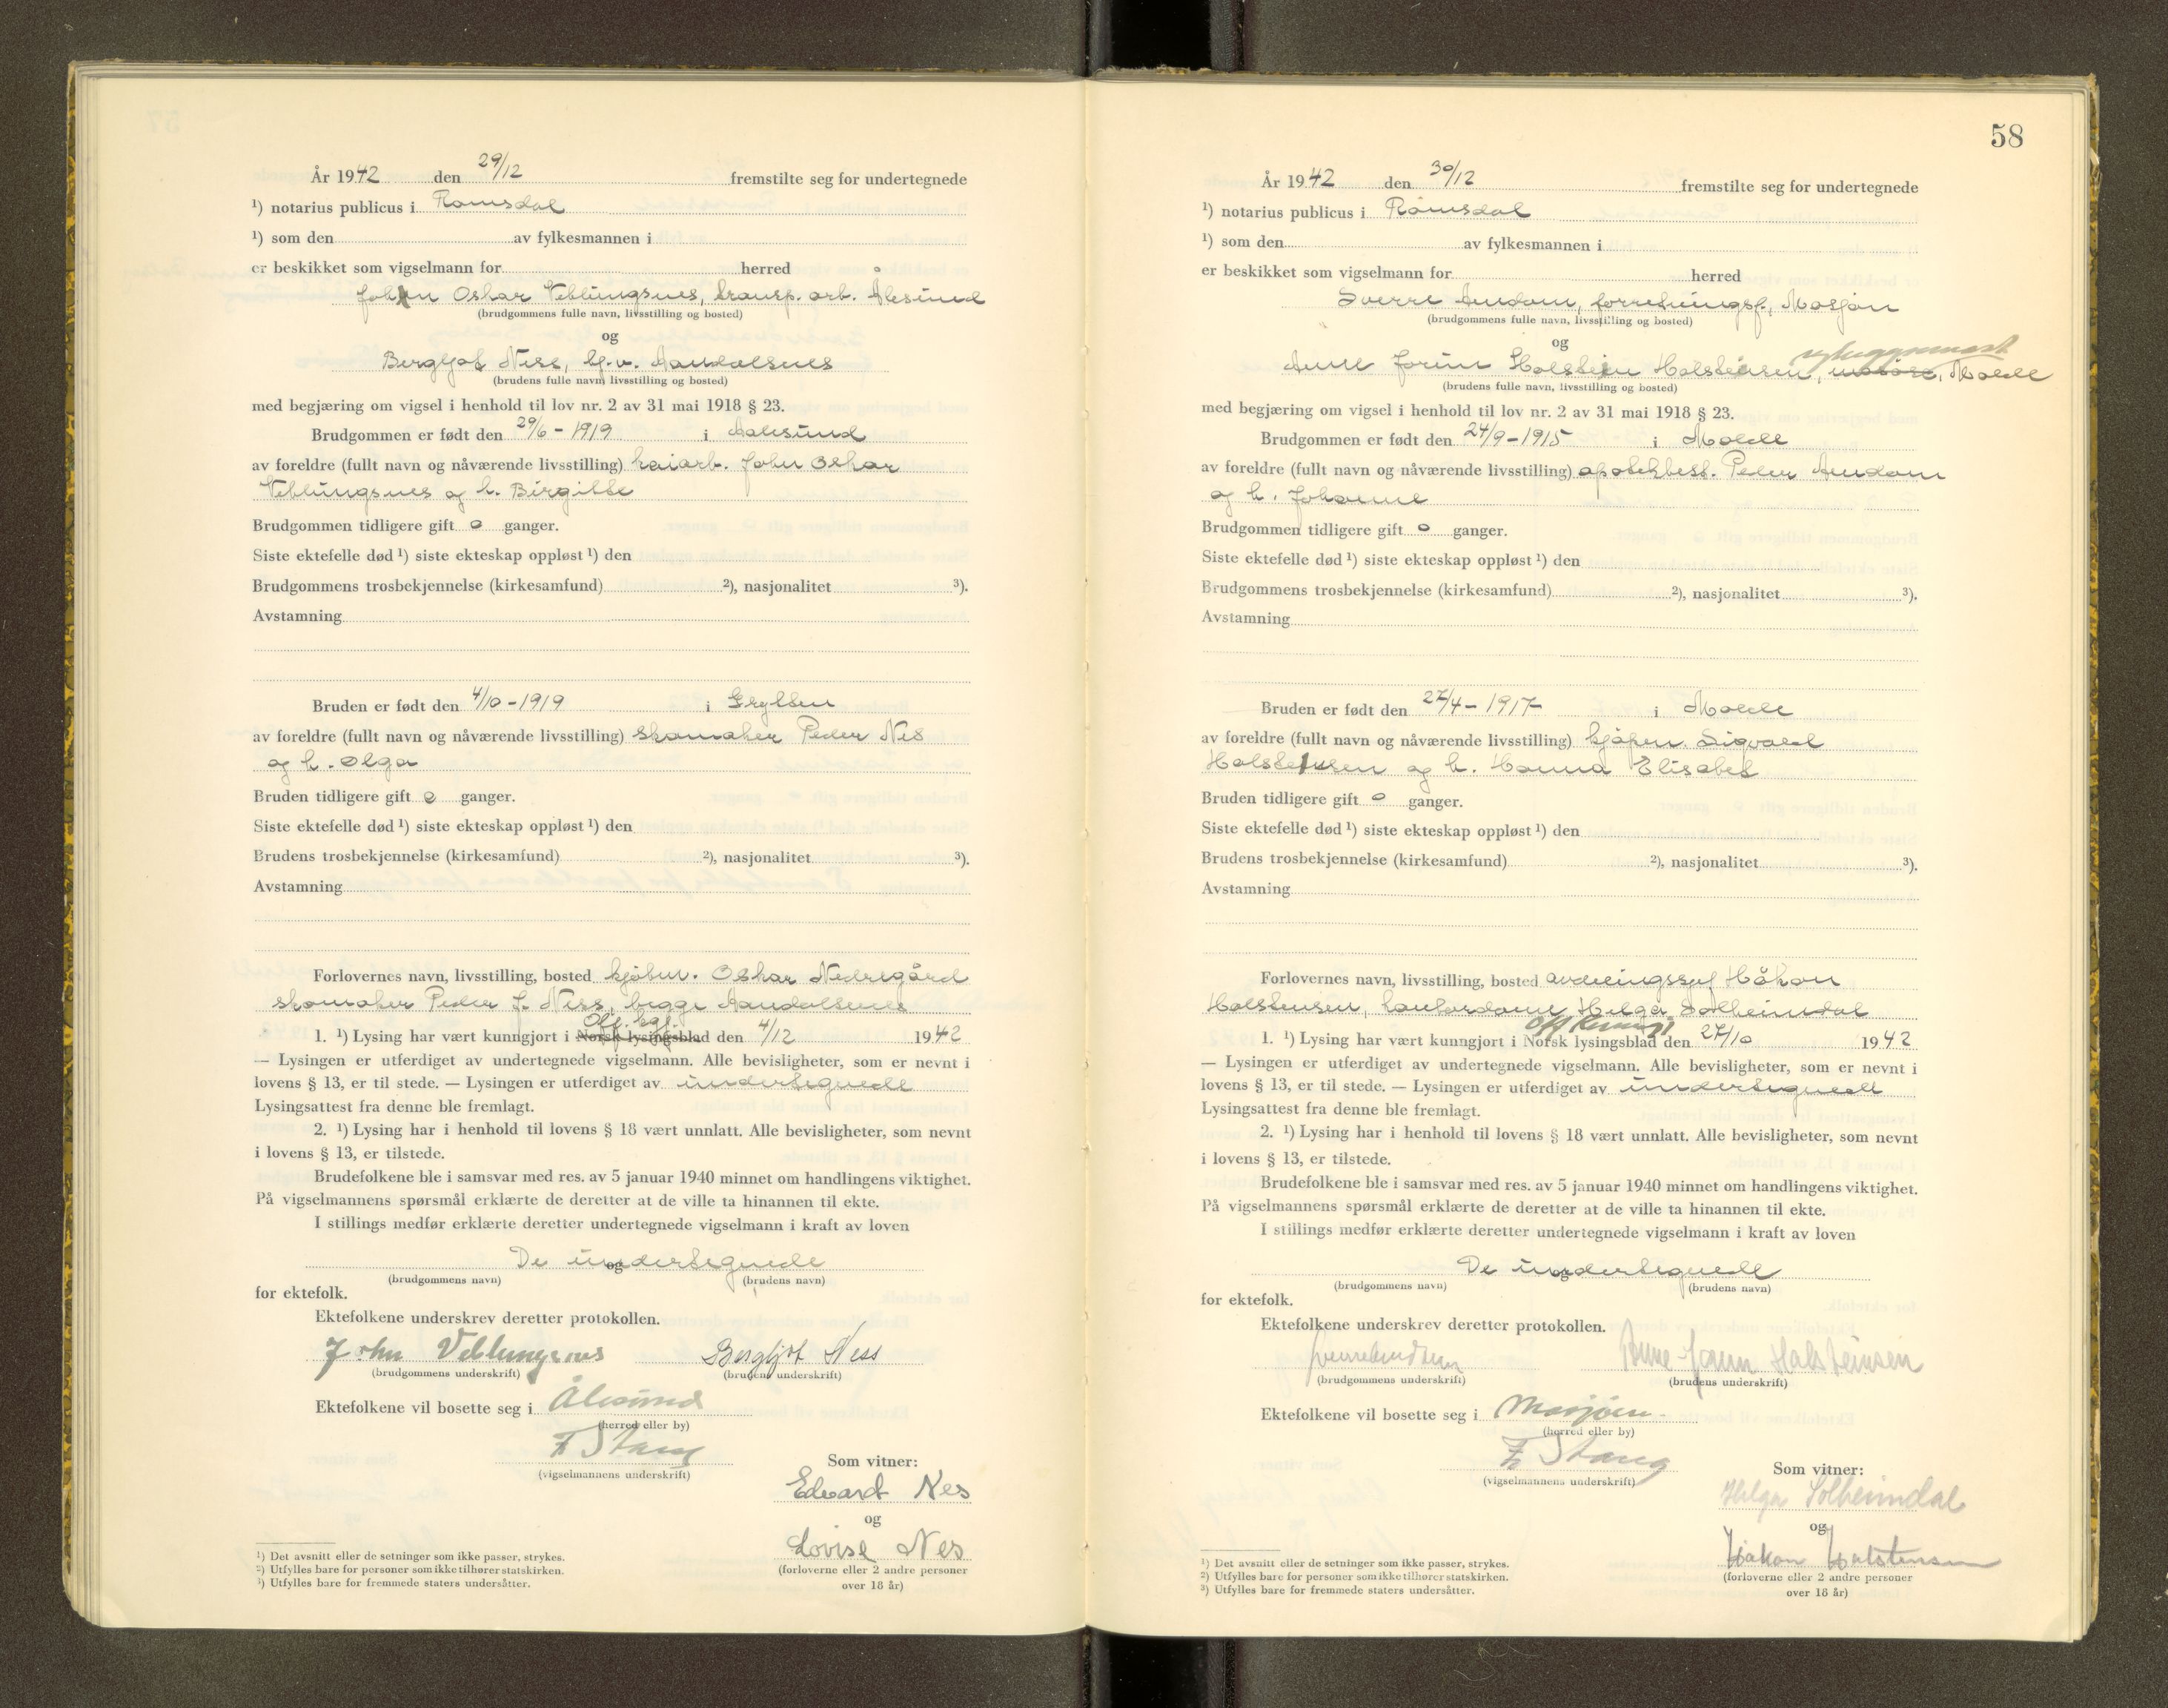 År 1942 den 29/12 fremstilte seg for undertegnede
¹) notarius publicus i Romsdal
¹) som den av fylkesmannen i
er beskikket som vigselmann for herred
John Oskar Veblungsnes, transp. arb. Ålesund
(brudgommens fulle navn, livsstilling og bosted)
og
Bergljot Ness, hj.v. Aandalsnes
(brudens fulle navn, livsstilling og bosted)
med begjæring om vigsel i henhold til lov nr. 2 av 31 mai 1918 § 23.
Brudgommen er født den 29/6 - 1919 i Aalesund
av foreldre (fullt navn og nåværende livsstilling) kaiarb. John Oskar
Veblungsnes og h. Birgitte
Brudgommen tidligere gift 0 ganger.
Siste ektefelle død ¹) siste ekteskap oppløst ¹) den
Brudgommens trosbekjennelse (kirkesamfund) ²), nasjonalitet ³).
Avstamning
Bruden er født den 4/10 - 1919 i Grytten
av foreldre (fullt navn og nåværende livsstilling) skomaker Peder Nes
og h. Olga
Bruden tidligere gift 0 ganger.
Siste ektefelle død ¹) siste ekteskap oppløst ¹) den
Brudens trosbekjennelse (kirkesamfund) ²), nasjonalitet ³).
Avstamning
Forlovernes navn, livsstilling, bosted kjøbm. Oskar Nedregård
skomaker Peder J. Ness, begge Aandalsnes
Off. kgj.
1. ¹) Lysing har vært kunngjort i Norsk lysingsblad den 4/12 1942
— Lysingen er utferdiget av undertegnede vigselmann. Alle bevisligheter, som er nevnt i
lovens § 13, er til stede. — Lysingen er utferdiget av undertegnede
Lysingsattest fra denne ble fremlagt.
2. ¹) Lysing har i henhold til lovens § 18 vært unnlatt. Alle bevisligheter, som nevnt
i lovens § 13, er tilstede.
Brudefolkene ble i samsvar med res. av 5 januar 1940 minnet om handlingens viktighet.
På vigselmannens spørsmål erklærte de deretter at de ville ta hinannen til ekte.
I stillings medfør erklærte deretter undertegnede vigselmann i kraft av loven
De undertegnede
og
(brudgommens navn) (brudens navn)
for ektefolk.
Ektefolkene underskrev deretter protokollen.
John Veblungsnes Bergljot Ness
(brudgommens underskrift) (brudens underskrift)
Ektefolkene vil bosette seg i Ålesund
(herred eller by)
F Stang
(vigselmannens underskrift)
Som vitner:
Edvard Nes
og
Lovise Nes
(forloverne eller 2 andre personer
over 18 år)
¹) Det avsnitt eller de setninger som ikke passer, strykes.
²) Utfylles bare for personer som ikke tilhører statskirken.
³) Utfylles bare for fremmede staters undersåtter.
58
År 1942 den 30/12 fremstilte seg for undertegnede
¹) notarius publicus i Romsdal
¹) som den av fylkesmannen i
er beskikket som vigselmann for herred
Sverre Amdam, forretningsf., Mosjøn
(brudgommens fulle navn, livsstilling og bosted)
og
Anne Jorun Holstein Holsteinsen, Molde
(brudens fulle navn, livsstilling og bosted)
med begjæring om vigsel i henhold til lov nr. 2 av 31 mai 1918 § 23.
Brudgommen er født den 24/9 - 1915 i Molde
av foreldre (fullt navn og nåværende livsstilling) apotekbest. Peder Amdam
og h. Johanne
Brudgommen tidligere gift 0 ganger.
Siste ektefelle død ¹) siste ekteskap oppløst ¹) den
Brudgommens trosbekjennelse (kirkesamfund) ²), nasjonalitet ³).
Avstamning
Bruden er født den 27/4 - 1917 i Molde
av foreldre (fullt navn og nåværende livsstilling) kjøpm. Sigvald
Holstensen og h. Hanna Elisabet
Bruden tidligere gift 0 ganger.
Siste ektefelle død ¹) siste ekteskap oppløst ¹) den
Brudens trosbekjennelse (kirkesamfund) ²), nasjonalitet ³).
Avstamning
Forlovernes navn, livsstilling, bosted Håkon
Holstensen, kontordame Helga Solheimdal
Off
1. ¹) Lysing har vært kunngjort i Norsk lysingsblad den 27/10 1942
— Lysingen er utferdiget av undertegnede vigselmann. Alle bevisligheter, som er nevnt i
lovens § 13, er til stede. — Lysingen er utferdiget av undertegnede
Lysingsattest fra denne ble fremlagt.
2. ¹) Lysing har i henhold til lovens § 18 vært unnlatt. Alle bevisligheter, som nevnt
i lovens § 13, er tilstede.
Brudefolkene ble i samsvar med res. av 5 januar 1940 minnet om handlingens viktighet.
På vigselmannens spørsmål erklærte de deretter at de ville ta hinannen til ekte.
I stillings medfør erklærte deretter undertegnede vigselmann i kraft av loven
De undertegnede
og
(brudgommens navn) (brudens navn)
for ektefolk.
Ektefolkene underskrev deretter protokollen.
Sverre Amdam Anne Jorun Holsteinsen
(brudgommens underskrift) (brudens underskrift)
Ektefolkene vil bosette seg i Mosjøen
(herred eller by)
F Stang
(vigselmannens underskrift)
Som vitner:
Helga Solheimdal
og
Håkon Holstensen
(forloverne eller 2 andre personer
over 18 år)
¹) Det avsnitt eller de setninger som ikke passer, strykes.
²) Utfylles bare for personer som ikke tilhører statskirken.
³) Utfylles bare for fremmede staters undersåtter.